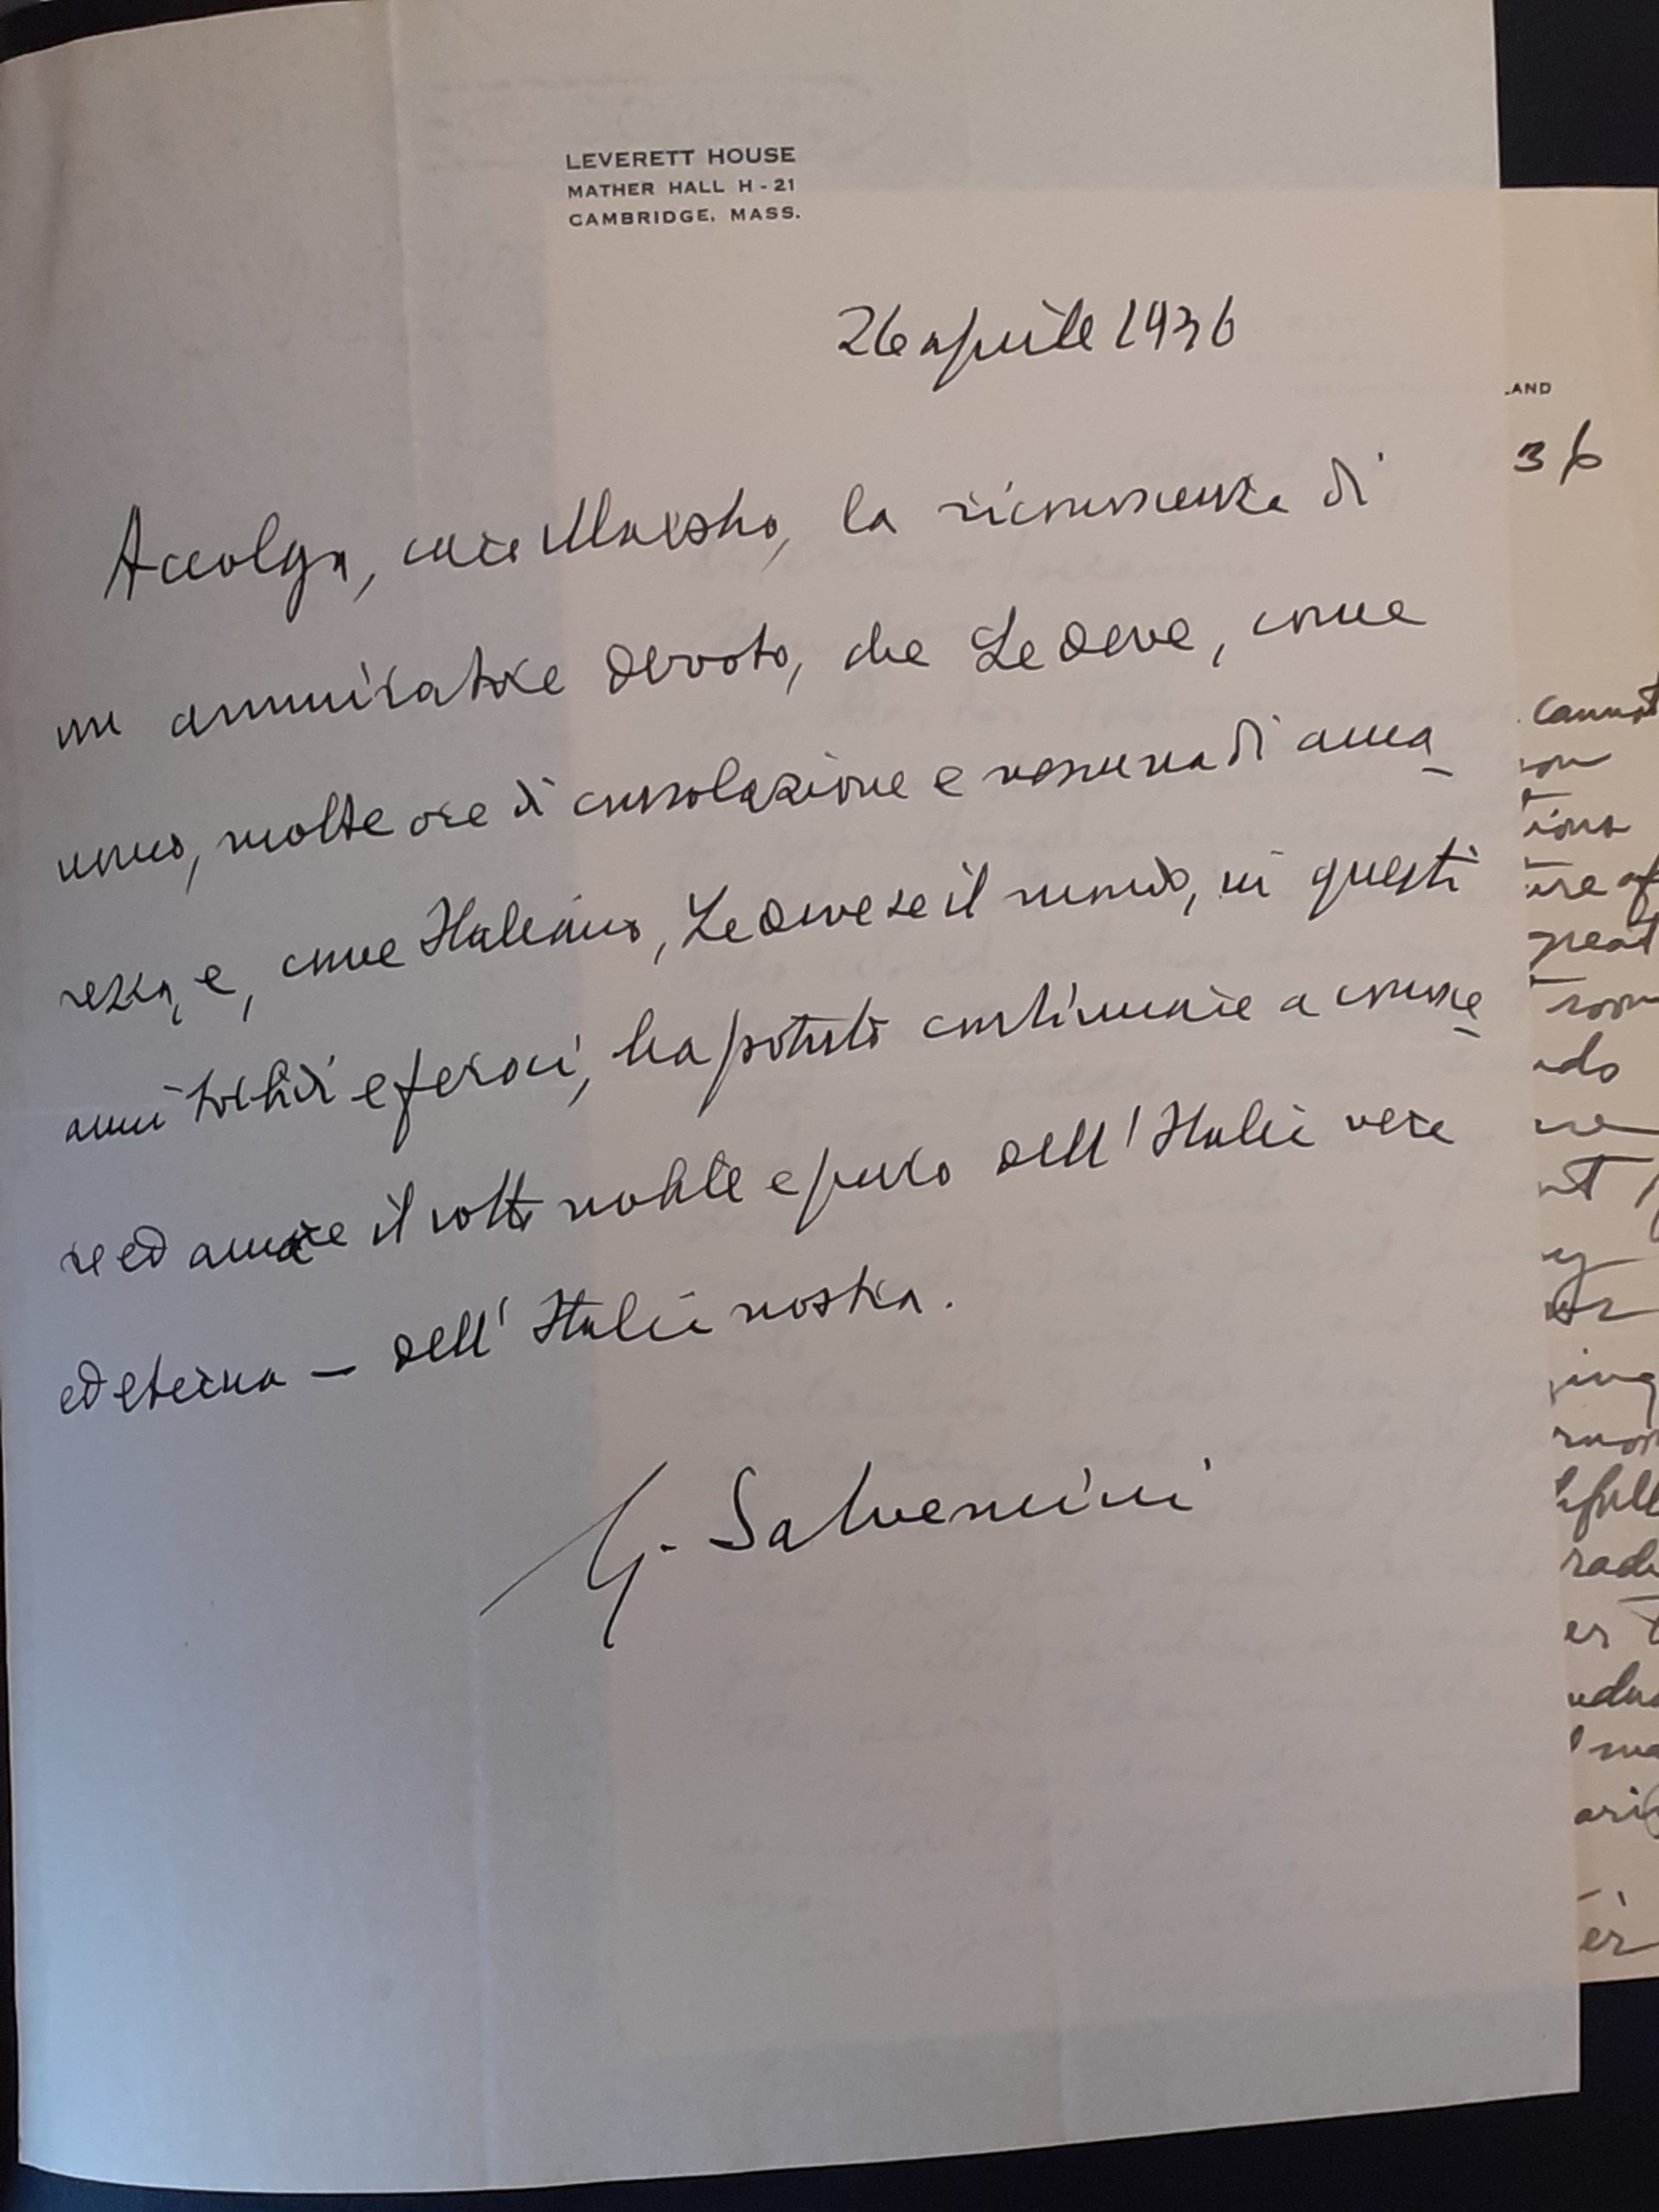 LEVERETT HOUSE
MATHER HALL H - 21
CAMBRIDGE, MASS.
26 aprile 1936
Accolga, caro Maestro, la riconoscenza di
un ammiratore devoto, che Le deve, come
uomo, molte ore di consolazione e nessuna di ama
rezza, e, come Italiano, Le deve se il mondo, in questi
anni torbidi e feroci, ha potuto continuare a conosce
re ed amare il volto nobile e puro dell'Italia vera
ed eterna — dell'Italia nostra.
G. Salvemini
AND
36
cannot
ions
ure of
great
room
ado
ne
nt
ing
er